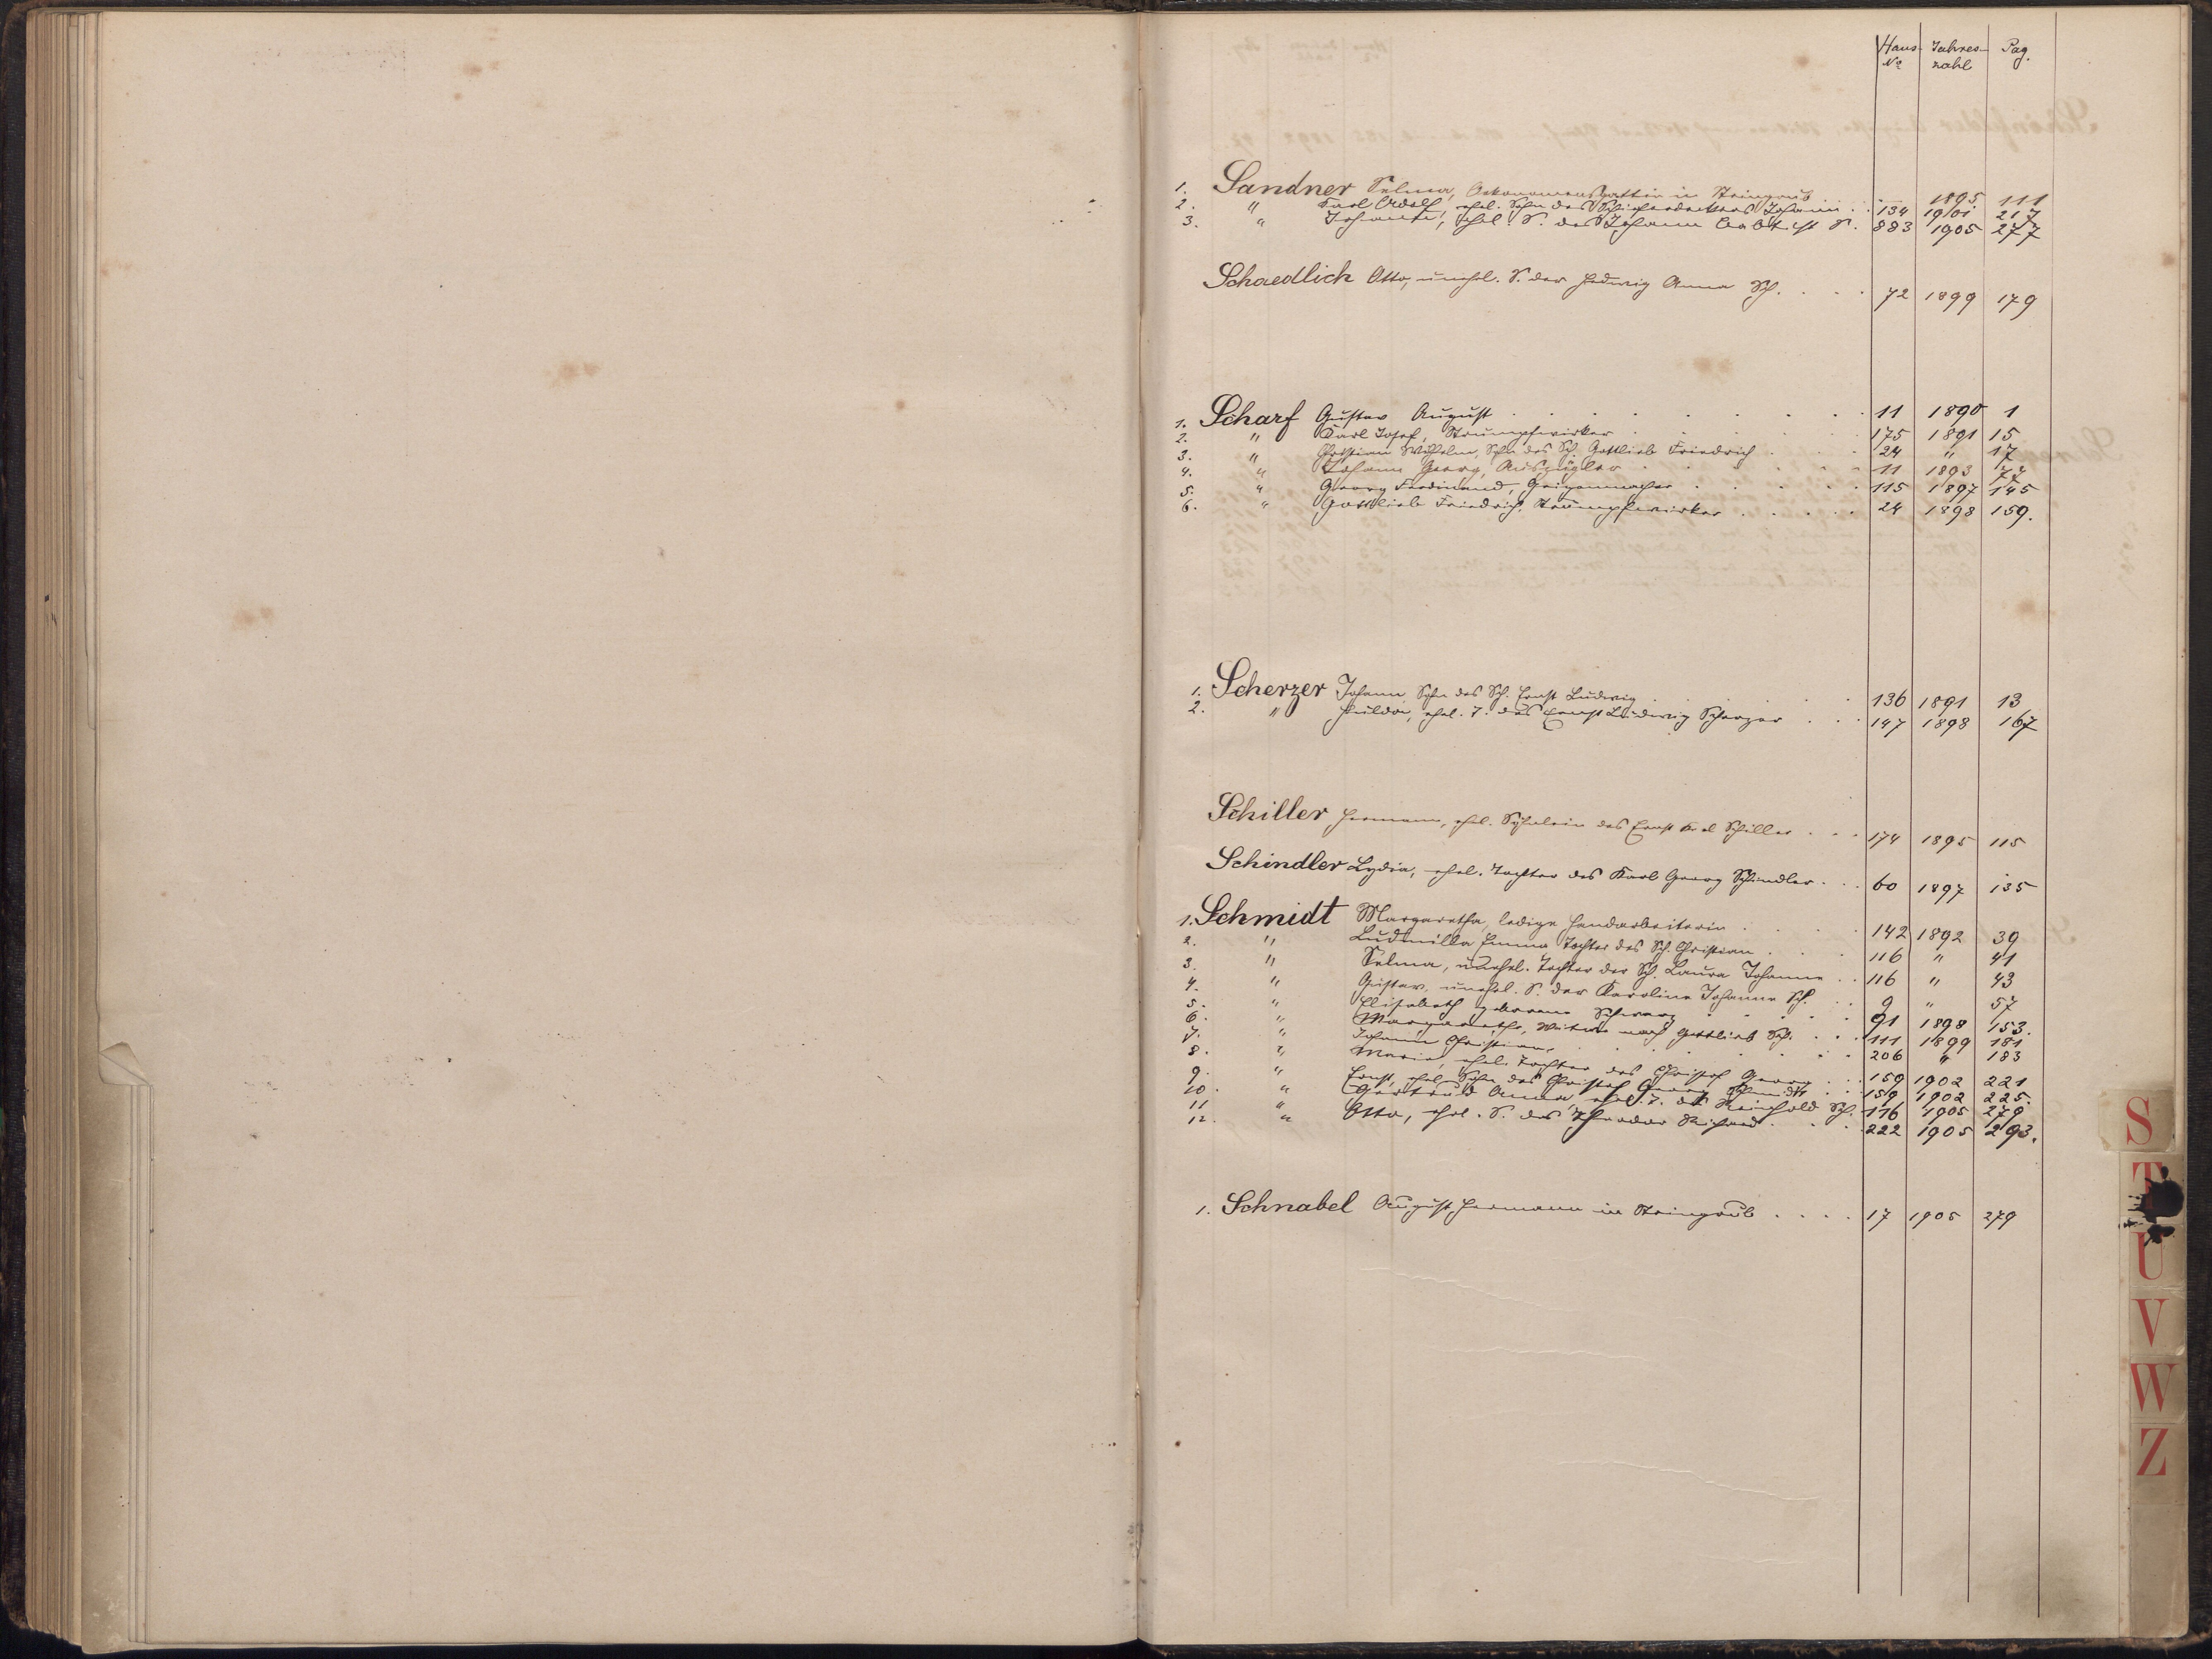 Haus- Jahres- Pag.
No zahl
1. Sandner Selma, Oekonomensgattin in Steingrub . — 1895 111
2. " Karl Adolf, ehel. Sohn des Johann . . 134 1901 217
3. " Johann, ehel. S. des Johann S. 883 1905 277
Schaedlich Otto, unehel. S. der Hedwig Anna Sch. . . . 72 1899 179
1. Scharf Gustav August . . . . . . . 11 1890 1
2. " Karl Josef, Strumpfwirker . . . . . 175 1891 15
3. " Christian Wilhelm, Sohn des Sch. Gottlieb Friedrich . . . 24 " 17
4. " Johann Georg, Auszügler . . . . . 11 1893 77
5. " Georg Ferdinand, Geigenmacher . . . . . 115 1897 145
6. " Gottlieb Friedrich, Strumpfwirker . . . . . 24 1898 159.
1. Scherzer Johann Sohn des Sch. Ernst Ludwig . . . . . 136 1891 13
2. " Hulda, ehel. T. des Ernst Ludwig Scherzer . . . 147 1898 167
Schiller Hermann, ehel. Söhnlein des Ernst Karl Schiller . . . 174 1895 115
Schindler Lydia, ehel. Tochter des Karl Georg Schindler . . . 60 1897 135
1. Schmidt Margaretha, ledige Handarbeiterin . . . . 142 1892 39
2. " Ludmilla Emma Tochter des Sch. Christian . . . . 116 " 41
3. " Selma, unehel. Tochter der Sch. Laura Johanna . . 116 " 43
4. " Gustav, unehel. S. der Karolina Johanna Sch. . . 9 " 57
5. " Elisabeth geborene Schwarz . . . . . 91 1898 153.
6. " Margaretha, Witwe nach Gottlieb Sch. . . . 111 1899 181
7. " Johann Christian, . . . . . . . 206 " 183
8. " Maria, ehel. Tochter des Christof Georg . . . 159 1902 221
9. " Ernst, ehel. Sohn des Christof Georg Schmidt . . 159 1902 225.
10. " Gertrud Anna, ehel. T. des Reinhold Sch. 116 1905 279
11 " Otto, ehel. S. des Theodor Richard . . . 222 1905 293.
12. "
1. Schnabel August Hermann in Steingrub . . . . 17 1905 279
S
T
U
V
W
Z